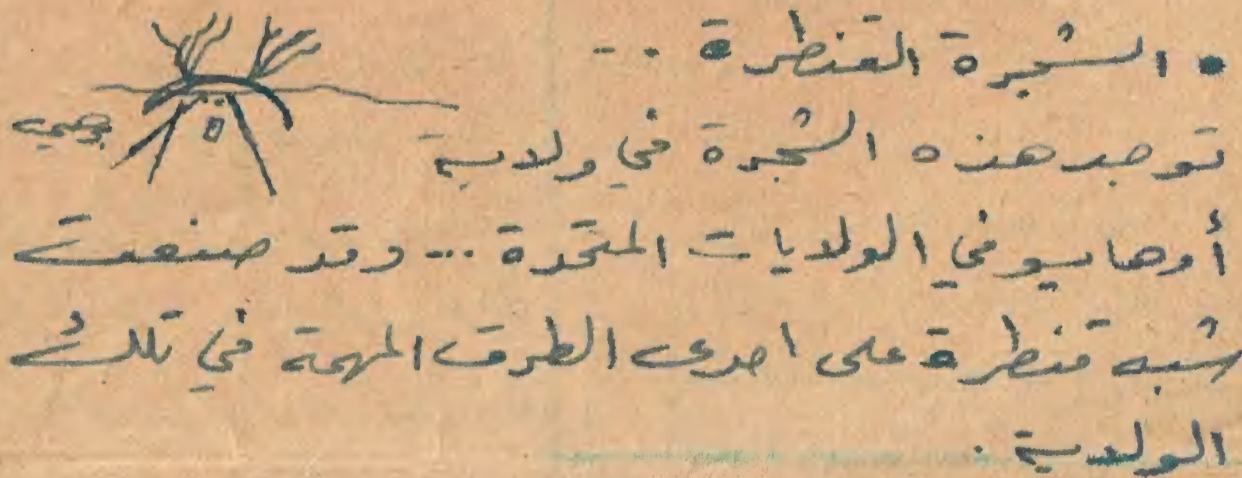 • الشجرة القنطرة ..
توجد هذه الشجرة في ولاية
أوهايو في الولايات المتحدة ... وقد صنعت
شبه قنطرة على احدى الطرق المهمة في تلك
الولاية .